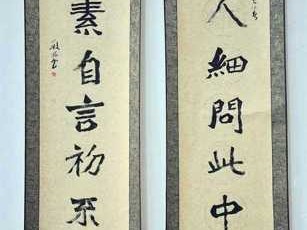 人細問此中
素自言初不